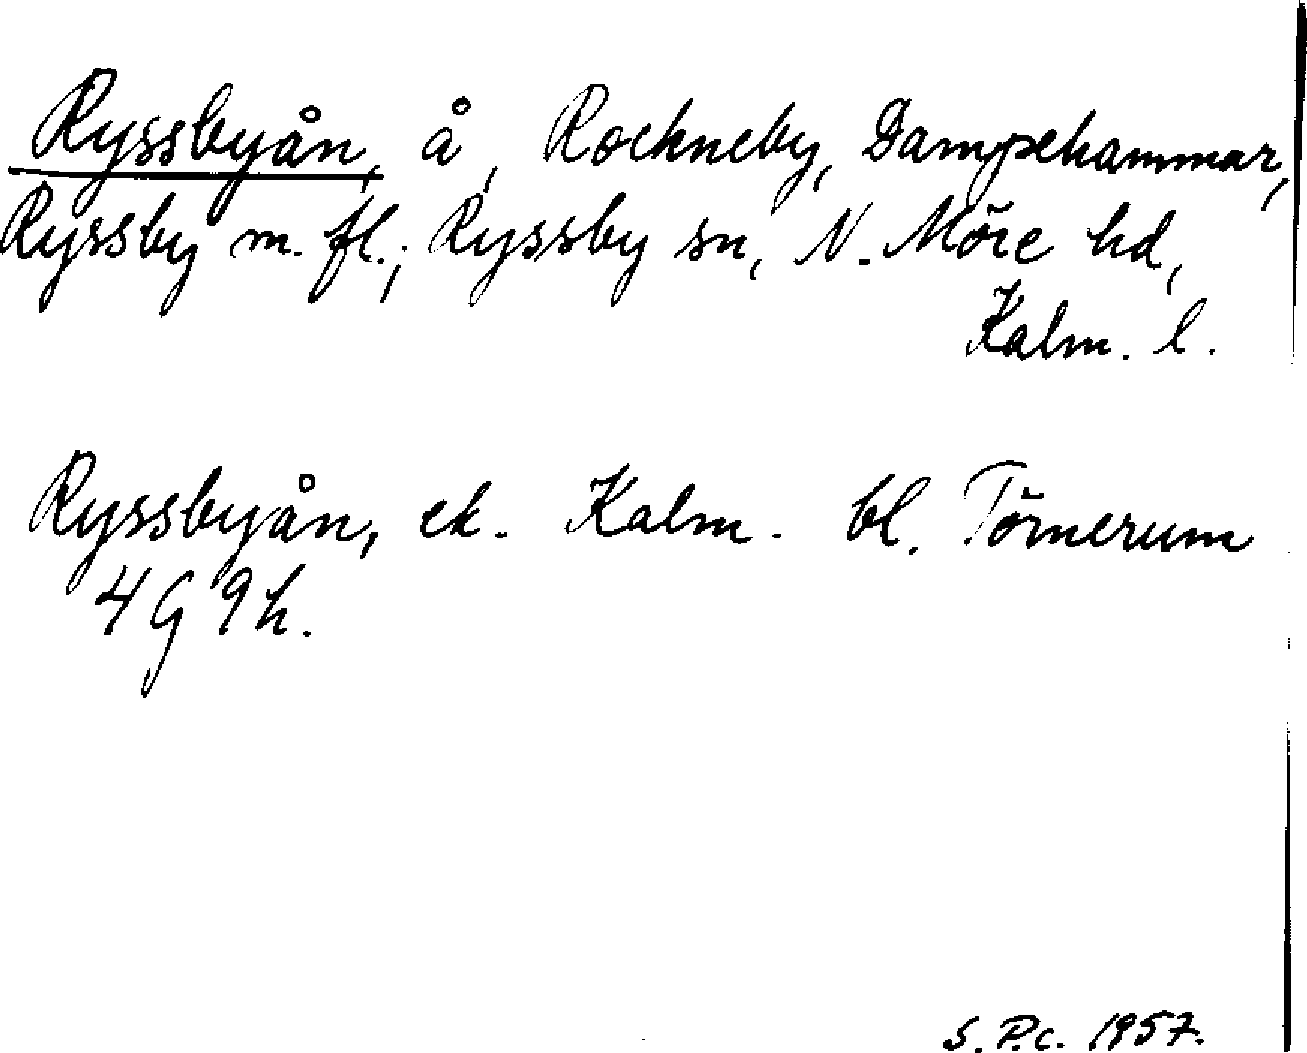 Ryssbyån, å, Rockneby, Dampehammar,
Ryssby m. fl.; Ryssby sn, N. Möre hd,
Kalm. l.
Ryssbyån, ek. Kalm. bl. Törnerum
4 G 9 h.
S. P.c. 1957.